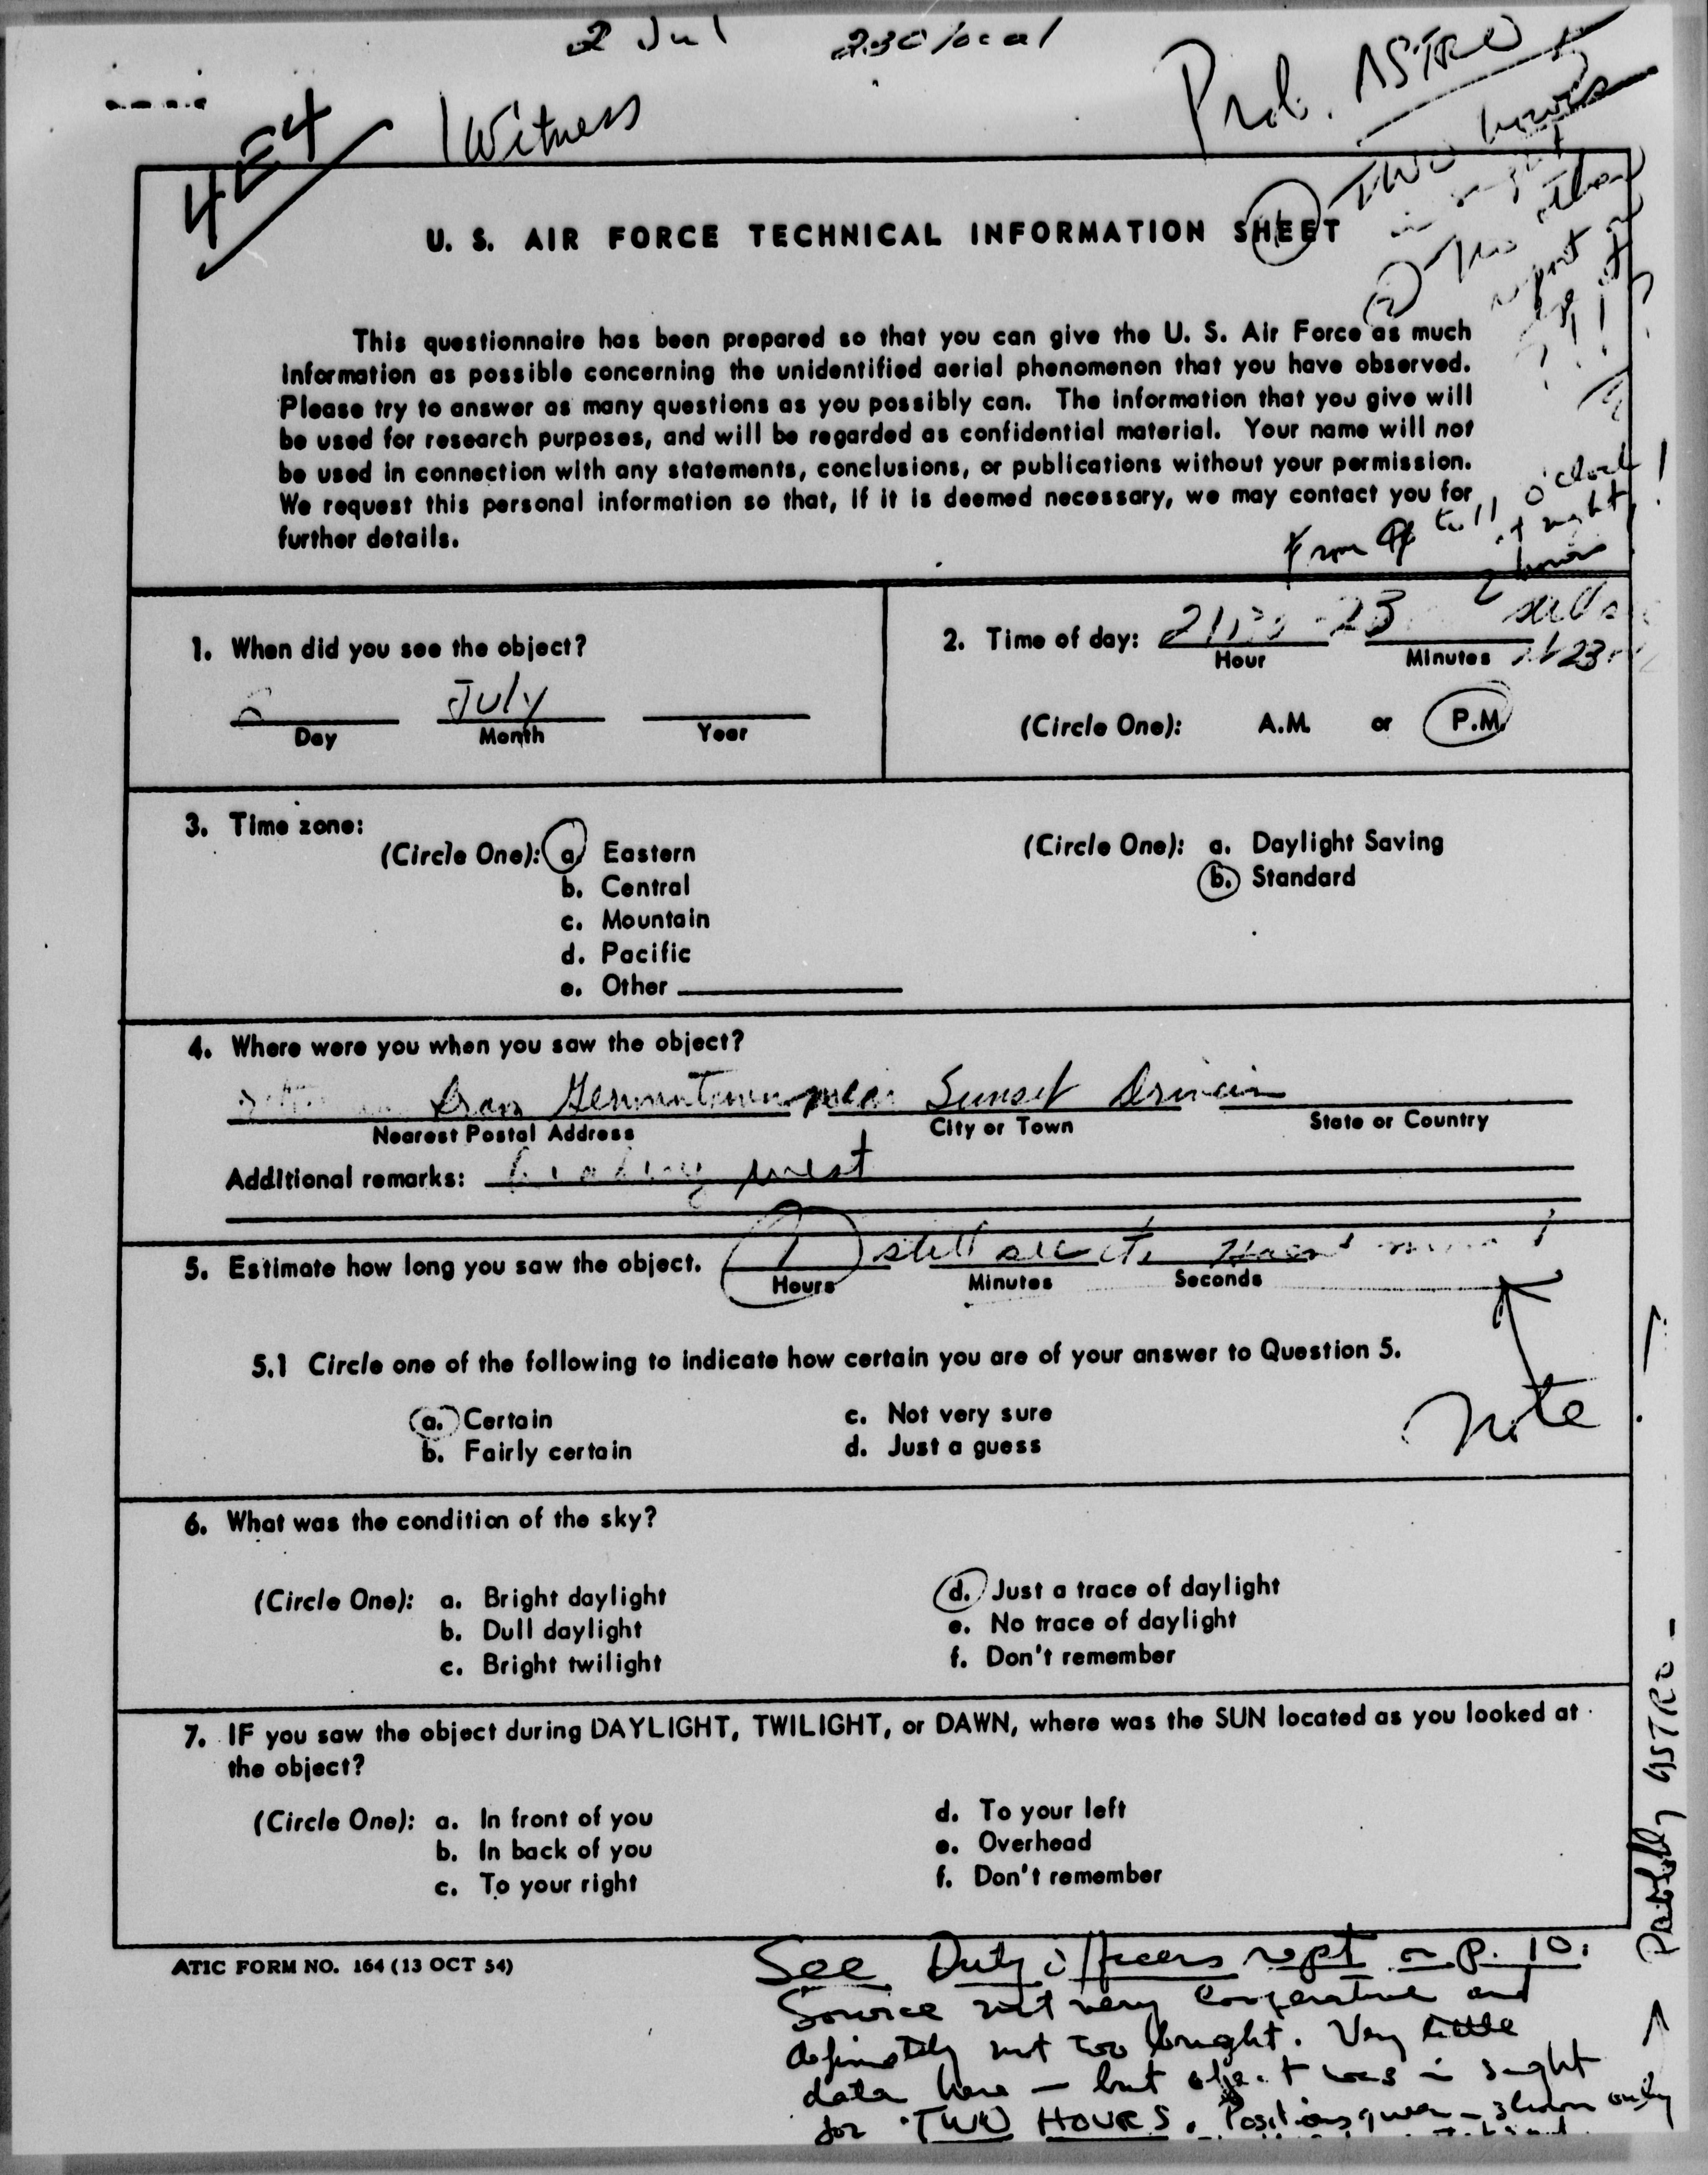 2 Jul 230 local
1 Witness
Prob. ASTRO
4E4
① TWO hours
in sight
② No other
report
U. S. AIR FORCE TECHNICAL INFORMATION SHEET
This questionnaire has been prepared so that you can give the U. S. Air Force as much
information as possible concerning the unidentified aerial phenomenon that you have observed.
Please try to answer as many questions as you possibly can. The information that you give will
be used for research purposes, and will be regarded as confidential material. Your name will not
be used in connection with any statements, conclusions, or publications without your permission.
We request this personal information so that, if it is deemed necessary, we may contact you for
further details.
From 9 to 11 o'clock
at night!
2 hours
1. When did you see the object?
July
Day Month Year
2. Time of day: 23
Hour Minutes
(Circle One): A.M. or P.M.
3. Time zone:
(Circle One): a. Eastern
b. Central
c. Mountain
d. Pacific
e. Other
(Circle One): a. Daylight Saving
b. Standard
4. Where were you when you saw the object?
from Germantown near Sunset
Nearest Postal Address City or Town State or Country
Additional remarks: heading west
5. Estimate how long you saw the object. 1 still see it
Hours Minutes Seconds
5.1 Circle one of the following to indicate how certain you are of your answer to Question 5.
a. Certain
b. Fairly certain
c. Not very sure
d. Just a guess
Note
6. What was the condition of the sky?
(Circle One): a. Bright daylight
b. Dull daylight
c. Bright twilight
d. Just a trace of daylight
e. No trace of daylight
f. Don't remember
7. IF you saw the object during DAYLIGHT, TWILIGHT, or DAWN, where was the SUN located as you looked at
the object?
(Circle One): a. In front of you
b. In back of you
c. To your right
d. To your left
e. Overhead
f. Don't remember
Probably ASTRO -
ATIC FORM NO. 164 (13 OCT 54)
See Duty officers rept on p. 10.
Source not very cooperative and
definitely not too bright. Very little
data here — but object was in sight
for TWO HOURS. Positions given - show only